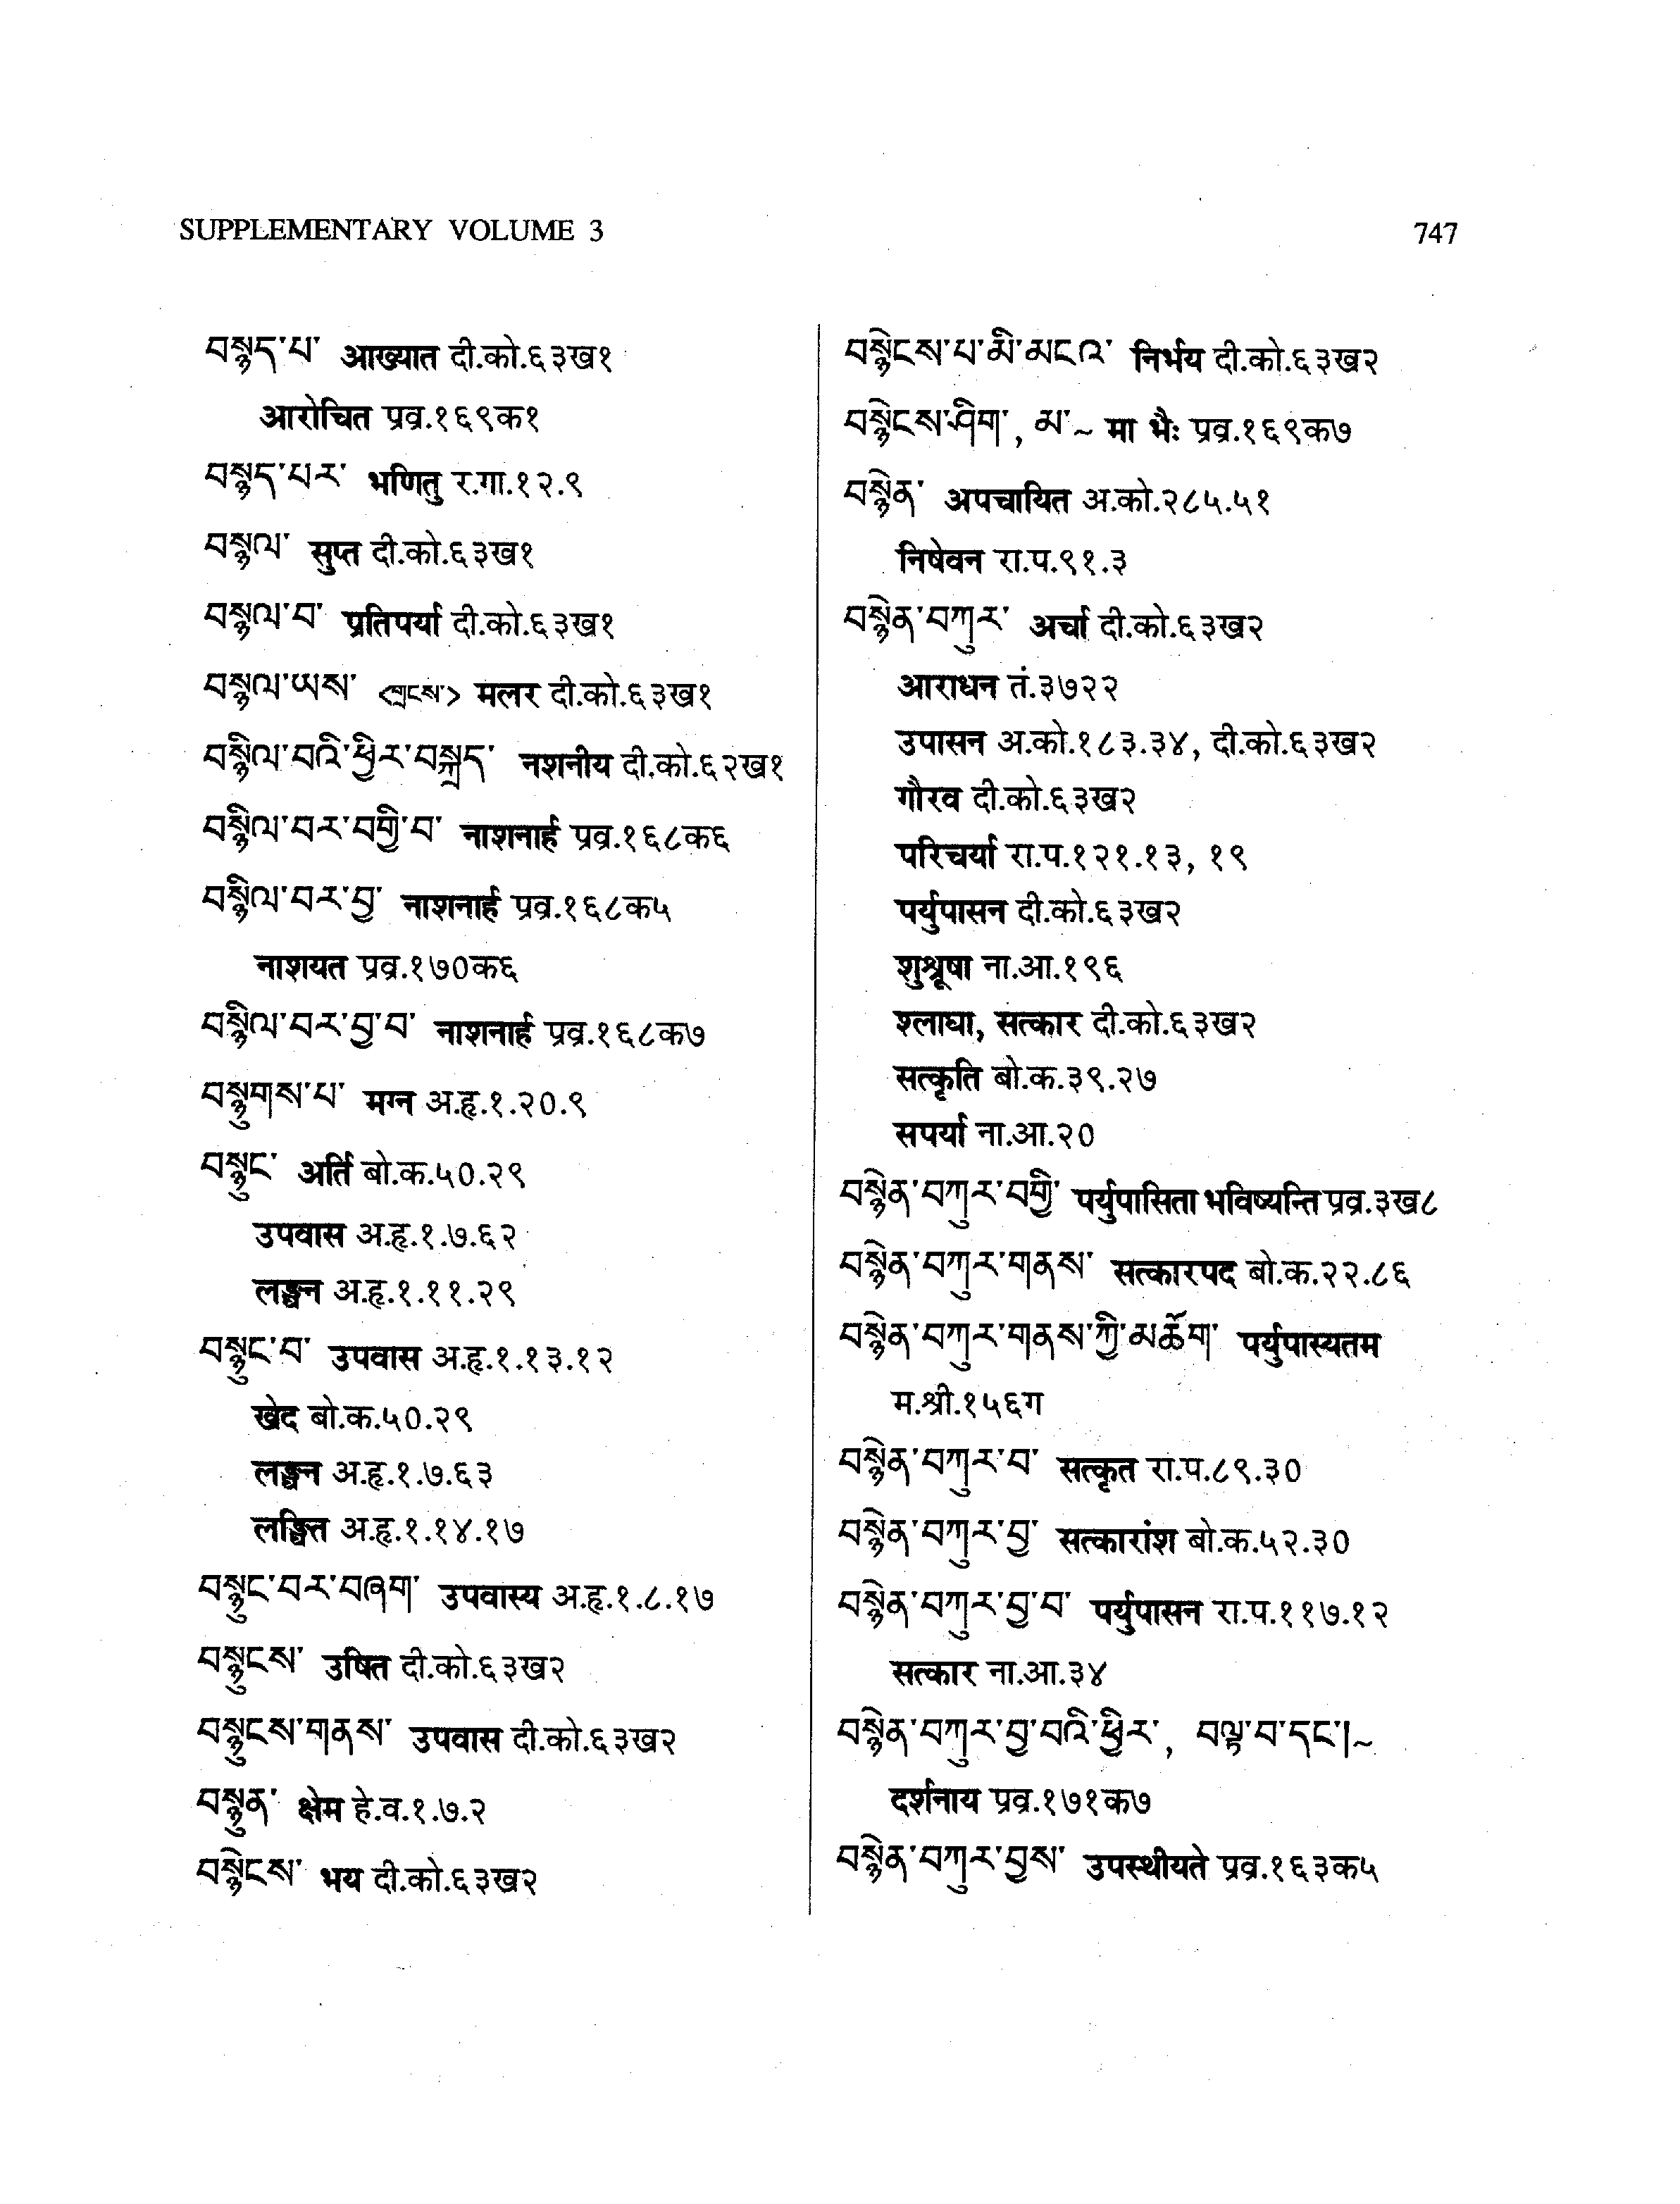 SUPPLEMENTARY VOLUME 3
747
བསྙད་པ་ आख्यात दी.को.६३ख१
आरोचित प्रव्र.१६९क१
བསྙད་པར་ भणितु र.गा.१२.९
བསྙལ་ सुप्त दी.को.६३ख१
བསྙལ་བ་ प्रतिपर्या दी.को.६३ख१
བསྙལ་ཡས་ <གྲངས་> मलर दी.को.६३ख१
བསྙིལ་བའི་ཕྱིར་བསྐྲད་ नशनीय दी.को.६२ख१
བསྙིལ་བར་བགྱི་བ་ नाशनार्ह प्रव्र.१६८क६
བསྙིལ་བར་བྱ་ नाशनार्ह प्रव्र.१६८क५
नाशयत प्रव्र.१७०क६
བསྙིལ་བར་བྱ་བ་ नाशनार्ह प्रव्र.१६८क७
བསྙུགས་པ་ मग्न अ.हृ.१.२०.९
བསྙུང་ अर्ति बो.क.५०.२९
उपवास अ.हृ.१.७.६२
लङ्घन अ.हृ.१.११.२९
བསྙུང་བ་ उपवास अ.हृ.१.१३.१२
खेद बो.क.५०.२९
लङ्घन अ.हृ.१.७.६३
लङ्घित अ.हृ.१.१४.१७
བསྙུང་བར་བཞག་ उपवास्य अ.हृ.१.८.१७
བསྙུངས་ उषित दी.को.६३ख२
བསྙུངས་གནས་ उपवास दी.को.६३ख२
བསྙུན་ क्षेम हे.व.१.७.२
བསྙེངས་ भय दी.को.६३ख२
བསྙེངས་པ་མི་མངའ་ निर्भय दी.को.६३ख२
བསྙེངས་ཤིག་, མ་~ मा भैः प्रव्र.१६९क७
བསྙེན་ अपचायित अ.को.२८५.५१
निषेवन रा.प.९१.३
བསྙེན་བཀུར་ अर्चा दी.को.६३ख२
आराधन तं.३७२२
उपासन अ.को.१८३.३४, दी.को.६३ख२
गौरव दी.को.६३ख२
परिचर्या रा.प.१२१.१३, १९
पर्युपासन दी.को.६३ख२
शुश्रूषा ना.आ.१९६
श्लाघा, सत्कार दी.को.६३ख२
सत्कृति बो.क.३९.२७
सपर्या ना.आ.२०
བསྙེན་བཀུར་བགྱི་ पर्युपासिता भविष्यन्ति प्रव्र.३ख८
བསྙེན་བཀུར་གནས་ सत्कारपद बो.क.२२.८६
བསྙེན་བཀུར་གནས་ཀྱི་མཆོག་ पर्युपास्यतम
म.श्री.१५६ग
བསྙེན་བཀུར་བ་ सत्कृत रा.प.८९.३०
བསྙེན་བཀུར་བྱ་ सत्कारांश बो.क.५२.३०
བསྙེན་བཀུར་བྱ་བ་ पर्युपासन रा.प.११७.१२
सत्कार ना.आ.३४
བསྙེན་བཀུར་བྱ་བའི་ཕྱིར་, བལྟ་བ་དང་།~
दर्शनाय प्रव्र.१७१क७
བསྙེན་བཀུར་བྱས་ उपस्थीयते प्रव्र.१६३क५